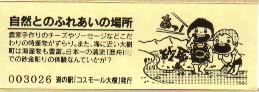 自然とのふれあいの場所
農家手作りのチーズやソーセージなどこだ
わりの特産物がずらり。また、海に近い大樹
町は海産物も豊富。日本一の清流「歴舟川」
での砂金彫りの体験なんていかが?
003026 道の駅「コスモール大樹」発行
あっ!